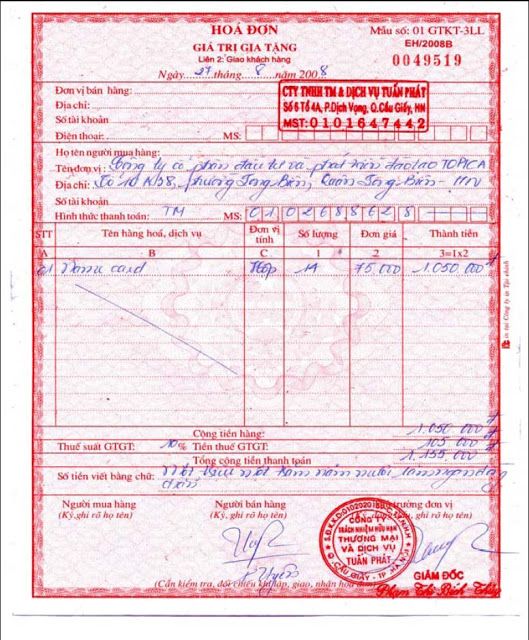 HOÁ ĐƠN
GIÁ TRỊ GIA TĂNG
Liên 2: Giao khách hàng
Ngày 27 tháng 8 năm 2008
Mẫu số: 01 GTKT-3LL
EH/2008B
0049519
Đơn vị bán hàng:
Địa chỉ:
Số tài khoản
Điện thoại: MS:
CTY TNHH TM & DỊCH VỤ TUẤN PHÁT
Số 6 Tổ 4A, P.Dịch Vọng, Q.Cầu Giấy, HN
MST: 0101647442
Họ tên người mua hàng:
Tên đơn vị: Công ty cổ phần đầu tư và phát triển đào tạo TOPICA
Địa chỉ: phường Long Biên, Quận Long Biên - HN
Số tài khoản
Hình thức thanh toán: TM MS: 0102688628
STT Tên hàng hoá, dịch vụ Đơn vị tính Số lượng Đơn giá Thành tiền
A B C 1 2 3=1x2
01 Name card Hộp 14 75.000 1.050.000đ
Cộng tiền hàng: 1.050.000đ
Thuế suất GTGT: 10% Tiền thuế GTGT: 105.000đ
Tổng cộng tiền thanh toán 1.155.000đ
Số tiền viết bằng chữ: Một triệu một trăm năm mươi lăm ngàn đồng
chẵn
Người mua hàng Người bán hàng Thủ trưởng đơn vị
(Ký,ghi rõ họ tên) (Ký, ghi rõ họ tên)
CÔNG TY
TRÁCH NHIỆM HỮU HẠN
THƯƠNG MẠI
VÀ DỊCH VỤ
TUẤN PHÁT
Q.CẦU GIẤY - TP.HÀ NỘI
Huyền
(Cần kiểm tra, đối chiếu khi lập, giao, nhận hoá đơn)
GIÁM ĐỐC
Phạm Thị Bích Thủy